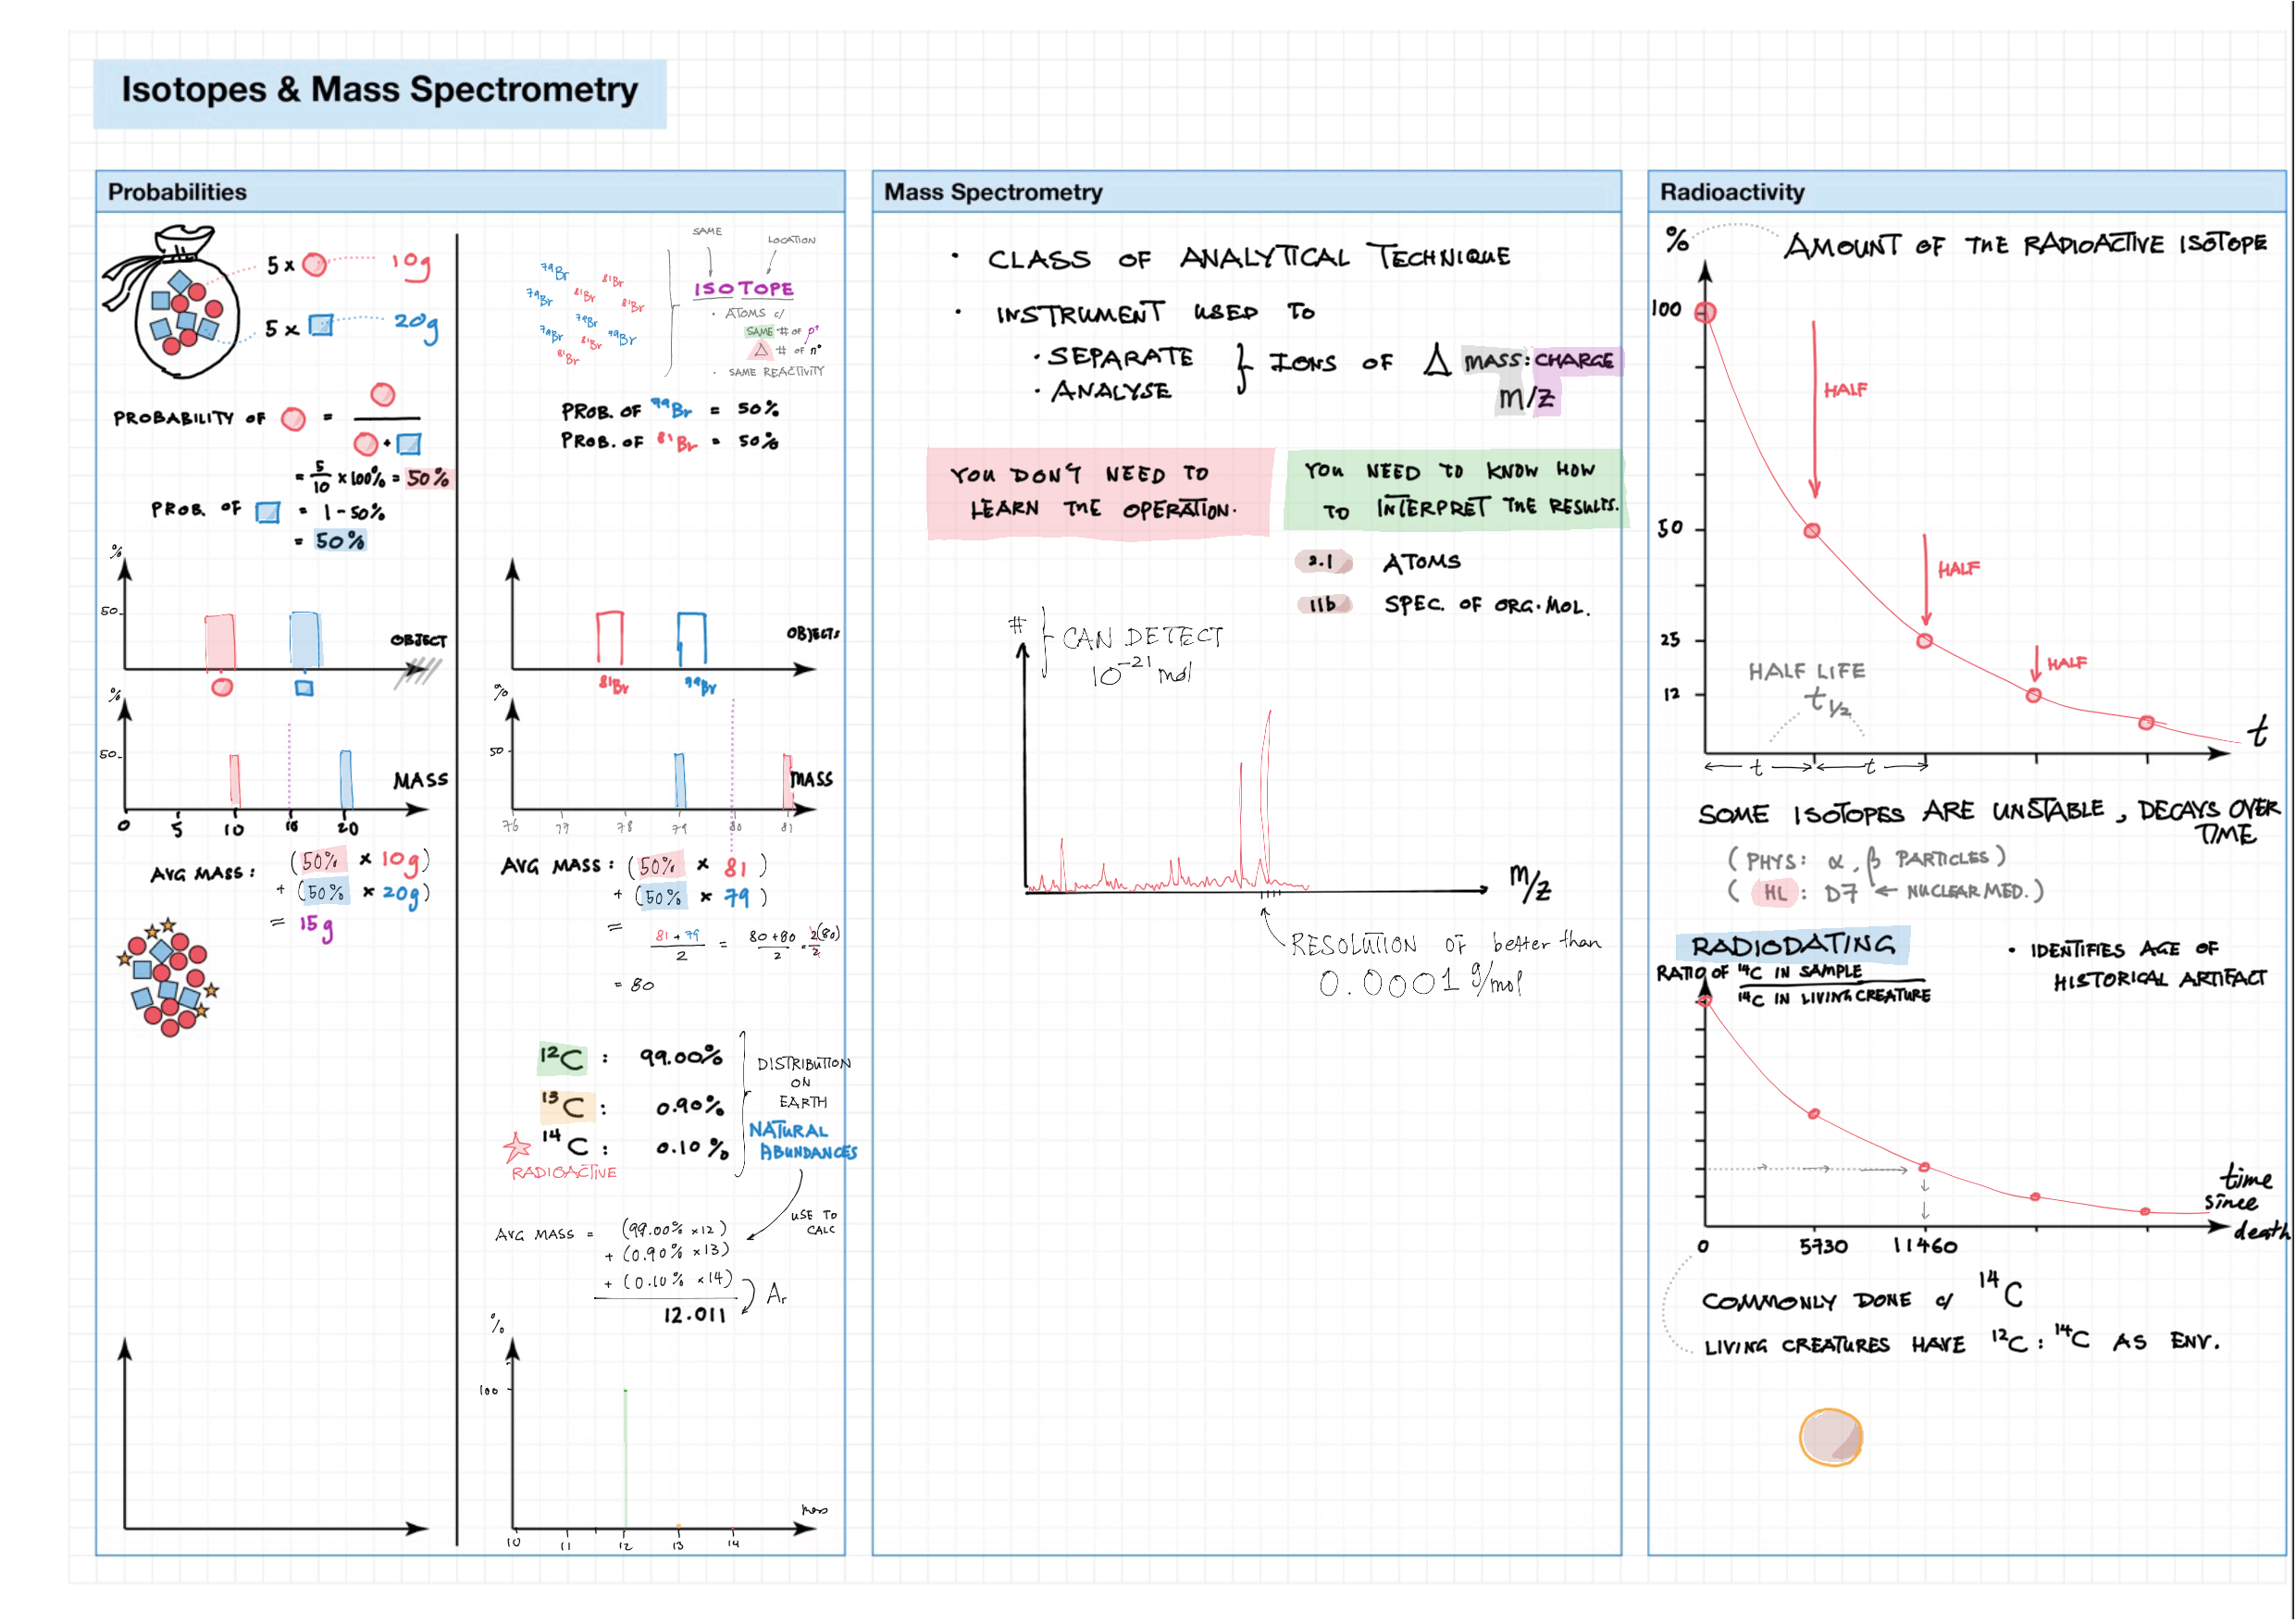 Isotopes & Mass Spectrometry
Probabilities
5 x 10g
5 x 20g
PROBABILITY OF =
+
= 5/10 x 100% = 50%
PROB. OF = 1 - 50%
= 50%
%
50
OBJECT
%
50
MASS
0 5 10 15 20
AVG MASS: (50% x 10g)
+ (50% x 20g)
= 15g
SAME
LOCATION
79Br 81Br
79Br 81Br 81Br
79Br
79Br 81Br 79Br
81Br
ISOTOPE
· ATOMS c/
SAME # OF p+
Δ # OF n°
· SAME REACTIVITY
PROB. OF 79Br = 50%
PROB. OF 81Br = 50%
OBJECTS
81Br 79Br
%
50
MASS
76 77 78 79 80 81
AVG MASS: (50% x 81)
+ (50% x 79)
= 81 + 79 / 2 = 80+80 / 2 = 2(80) / 2
= 80
12C : 99.00%
13C : 0.90%
14C : 0.10%
RADIOACTIVE
DISTRIBUTION
ON
EARTH
NATURAL
ABUNDANCES
USE TO
CALC
AVG MASS = (99.00% x12)
+ (0.90% x13)
+ (0.10% x14)
12.011
Ar
%
100
mass
10 11 12 13 14
Mass Spectrometry
· CLASS OF ANALYTICAL TECHNIQUE
· INSTRUMENT USED TO
· SEPARATE } IONS OF Δ MASS:CHARGE
· ANALYSE m/z
YOU DON'T NEED TO
LEARN THE OPERATION.
YOU NEED TO KNOW HOW
TO INTERPRET THE RESULTS.
2.1 ATOMS
11b SPEC. OF ORG. MOL.
# } CAN DETECT
10-21 mol
m/z
RESOLUTION OF better than
0.0001 g/mol
Radioactivity
% AMOUNT OF THE RADIOACTIVE ISOTOPE
100
HALF
50
HALF
25
HALF
12
HALF LIFE
t1/2
t
t t
SOME ISOTOPES ARE UNSTABLE, DECAYS OVER
TIME
(PHYS: α, β PARTICLES)
(HL: D7 ← NUCLEAR MED.)
RADIODATING
· IDENTIFIES AGE OF
HISTORICAL ARTIFACT
RATIO OF 14C IN SAMPLE
14C IN LIVING CREATURE
time
since
death
0 5730 11460
COMMONLY DONE c/ 14C
LIVING CREATURES HAVE 12C : 14C AS ENV.